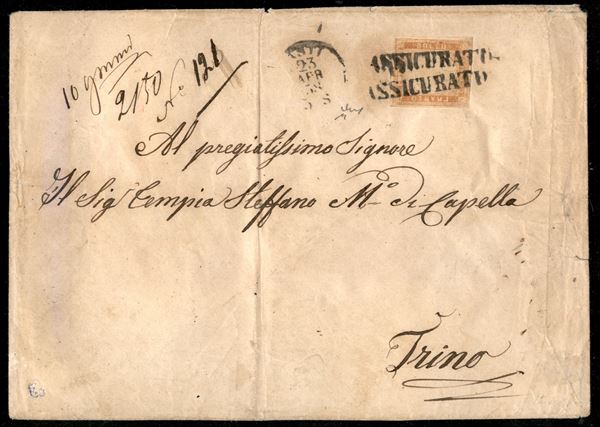 10 grammi
2150
No 126
23
APR
58
ASSICURATO
ASSICURATO
Al pregiatissimo Signore
Il Sig Cempia Steffano M.o di Capella
Trino